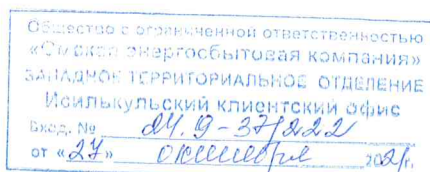 Общество с ограниченной ответственностью
«Омская энергосбытовая компания»
ЗАПАДНОЕ ТЕРРИТОРИАЛЬНОЕ ОТДЕЛЕНИЕ
Исилькульский клиентский офис
Вход. №
от «27» октября 2021г.